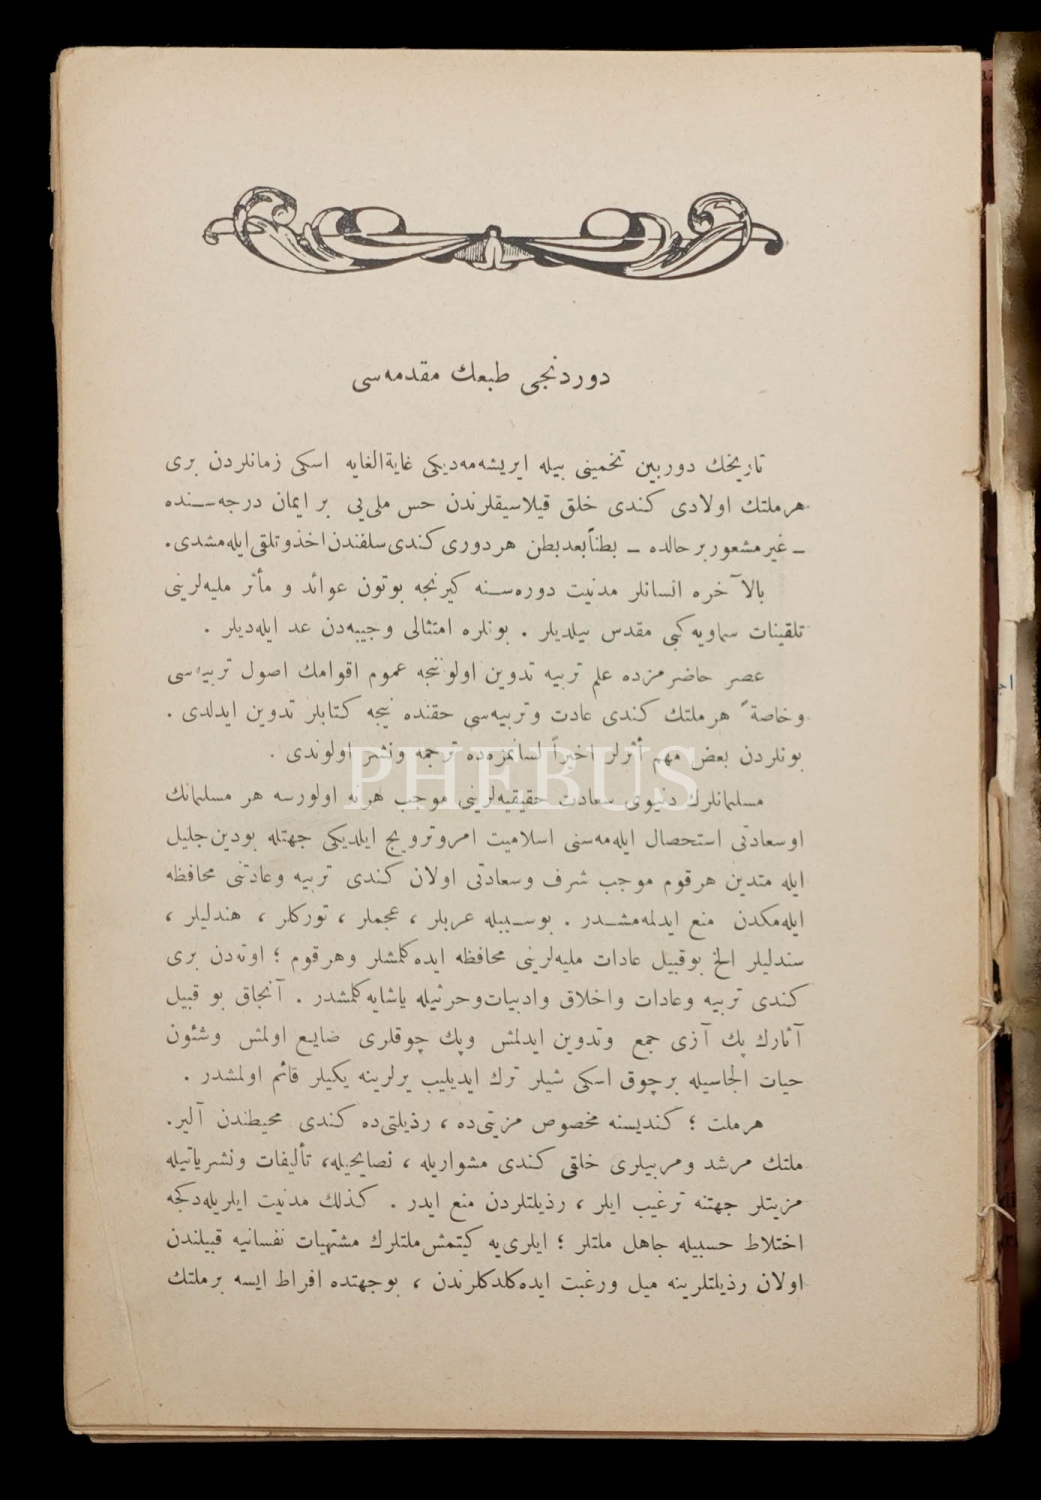 دوردنجى طبعك مقدمه‌سى
تاريخك دوربين تخمينى بيله ايريشه‌مه‌ديكى غاية‌الغايه اسكى زمانلردن برى
هرملتك اولادى كندى خلق قيلاسيقلرندن حس ملى‌يى بر ايمان درجه‌سنده
ـ غيرمشعور بر حالده ـ بطناًبعدبطن هردورى كندى سلفندن اخذوتلقى ايله‌مشدى.
بالآخره انسانلر مدنيت دوره‌سنه كيرنجه بوتون عوائد و مأثر مليه‌لرينى
تلقينات سماويه كبى مقدس بيلديلر . بونلره امتثالى وجيبه‌دن عد ايله‌ديلر .
عصر حاضرمزده علم تربيه تدوين اولوننجه عموم اقوامك اصول تربيه‌سى
وخاصةً هرملتك كندى عادت وتربيه‌سى حقنده نيجه كتابلر تدوين ايدلدى .
بونلردن بعض مهم أثرلر اخيراً لسانمزه‌ده ترجمه ونشر اولوندى .
PHEBUS
مسلمانلرك دنيوى سعادت حقيقيه‌لرينى موجب هرنه اولورسه هر مسلمانك
اوسعادتى استحصال ايله‌مه‌سنى اسلاميت امروترويج ايلديكى جهتله بودين جليل
ايله متدين هرقوم موجب شرف وسعادتى اولان كندى تربيه وعادتنى محافظه
ايله‌مكدن منع ايدلمه‌مشدر . بوسببله عربلر ، عجملر ، توركلر ، هنديلر ،
سنديلر الخ بوقبيل عادات مليه‌لرينى محافظه ايده‌كلمشلر وهرقوم ؛ اوته‌دن برى
كندى تربيه وعادات واخلاق وادبيات‌وحرثيله ياشايه‌كلمشدر . آنجاق بو قبيل
آثارك پك آزى جمع وتدوين ايدلمش وپك چوقلرى ضايع اولمش وشئون
حيات الجاسيله برچوق اسكى شيلر ترك ايديليب يرلرينه يكيلر قائم اولمشدر .
هرملت ؛ كنديسنه مخصوص مزيتى‌ده ، رذيلتى‌ده كندى محيطندن آلير.
ملتك مرشد ومربيلرى خلقى كندى مشواريله ، نصايحيله، تأليفات ونشرياتيله
مزيتلر جهتنه ترغيب ايلر ، رذيلتلردن منع ايدر . كذلك مدنيت ايلريله‌دكجه
اختلاط حسبيله جاهل ملتلر ؛ ايلرى‌يه كيتمش ملتلرك مشتهيات نفسانيه قبيلندن
اولان رذيلتلرينه ميل ورغبت ايده‌كلدكلرندن ، بوجهتده افراط ايسه برملتك